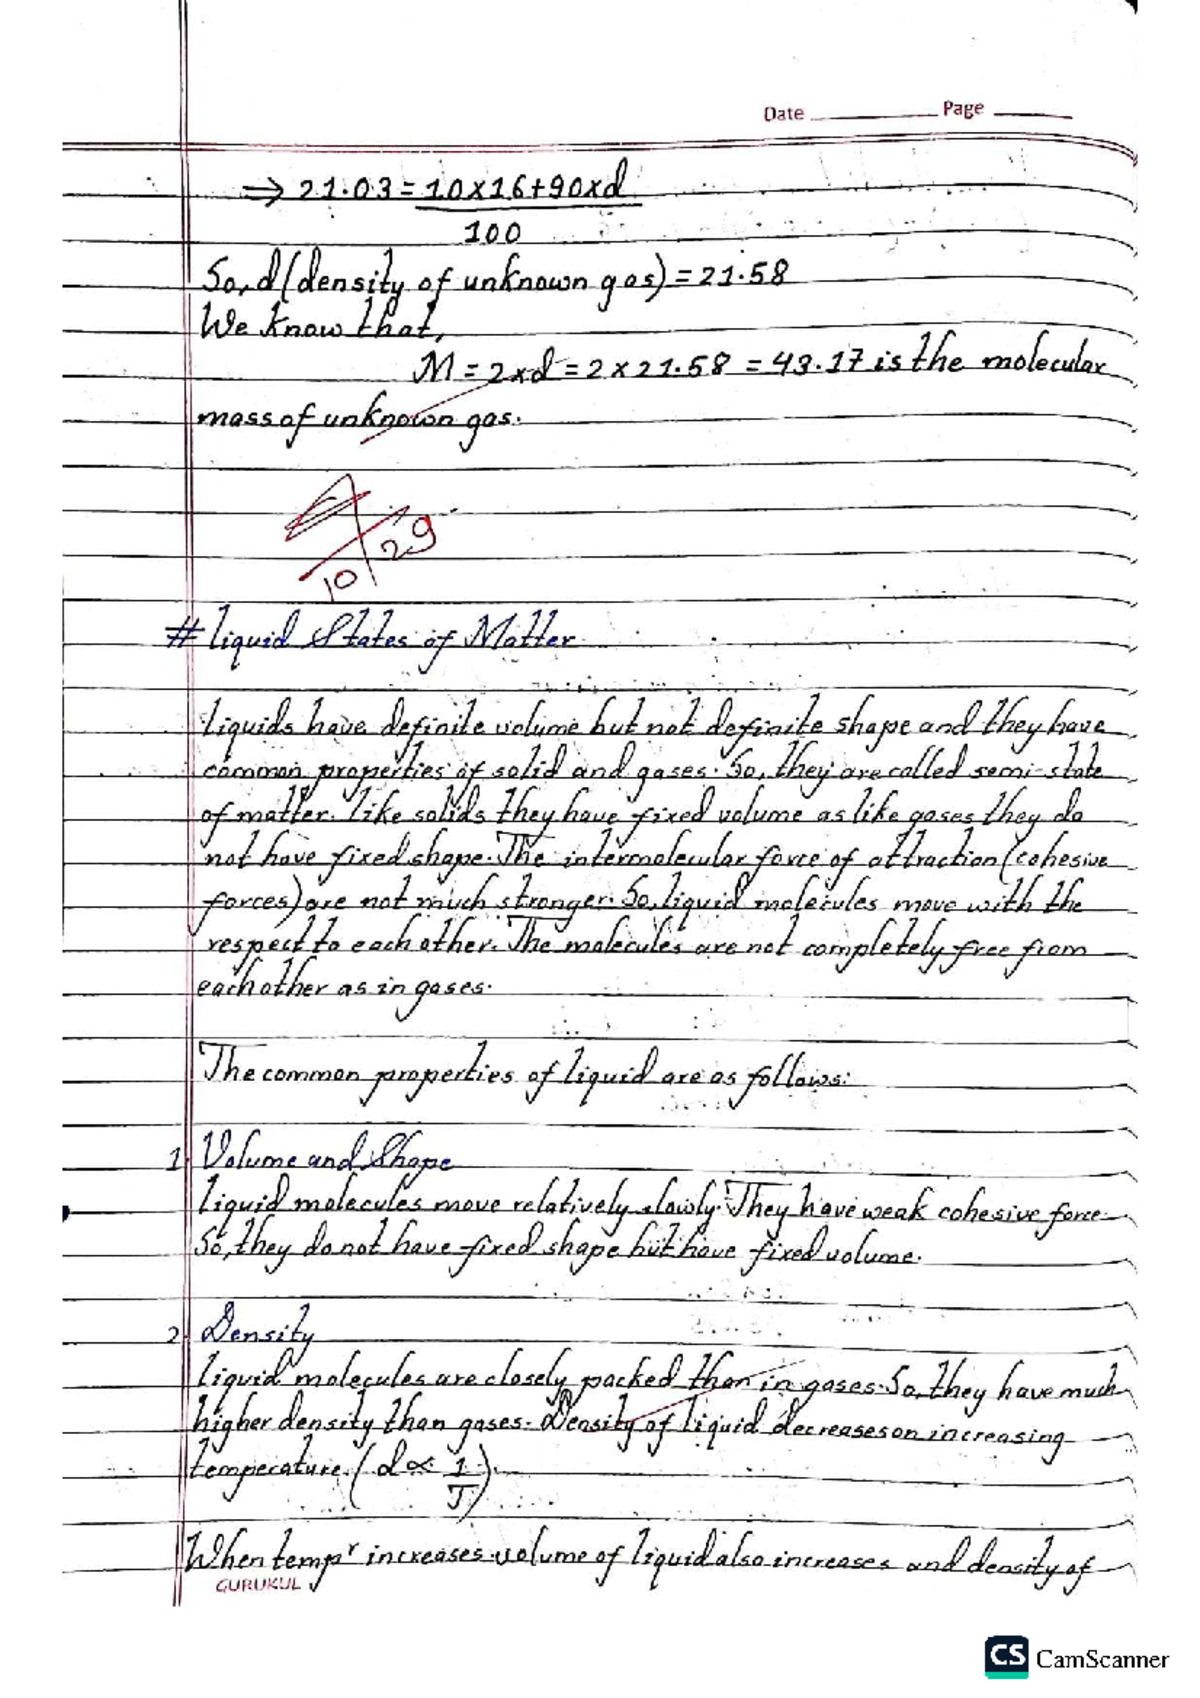 Date Page
⇒ 21.03 = 10x16+90xd
100
So, d (density of unknown gas) = 21.58
We know that,
M = 2xd = 2 x 21.58 = 43.17 is the molecular
mass of unknown gas.
29
10
# Liquid States of Matter
Liquids have definite volume but not definite shape and they have
common properties of solid and gases. So, they are called semi-state
of matter. Like solids they have fixed volume as like gases they do
not have fixed shape. The intermolecular force of attraction (cohesive
forces) are not much stronger. So, liquid molecules move with the
respect to each other. The molecules are not completely free from
each other as in gases.
The common properties of liquid are as follows:
1. Volume and Shape
Liquid molecules move relatively slowly. They have weak cohesive force.
So, they do not have fixed shape but have fixed volume.
2. Density
Liquid molecules are closely packed than in gases. So, they have much
higher density than gases. Density of liquid decreases on increasing
temperature. (d ∝ 1
T).
When tempr increases volume of liquid also increases and density of
GURUKUL
CS CamScanner